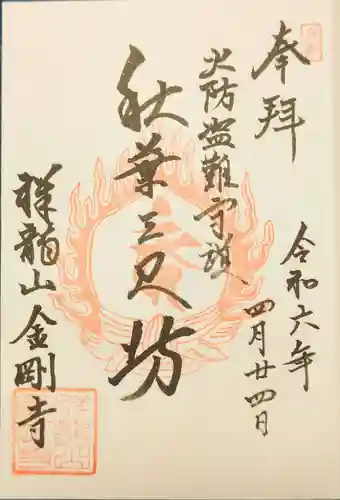 奉拝
火防盗難守護
秋葉三尺坊
令和六年
四月廿四日
祥龍山 金剛寺